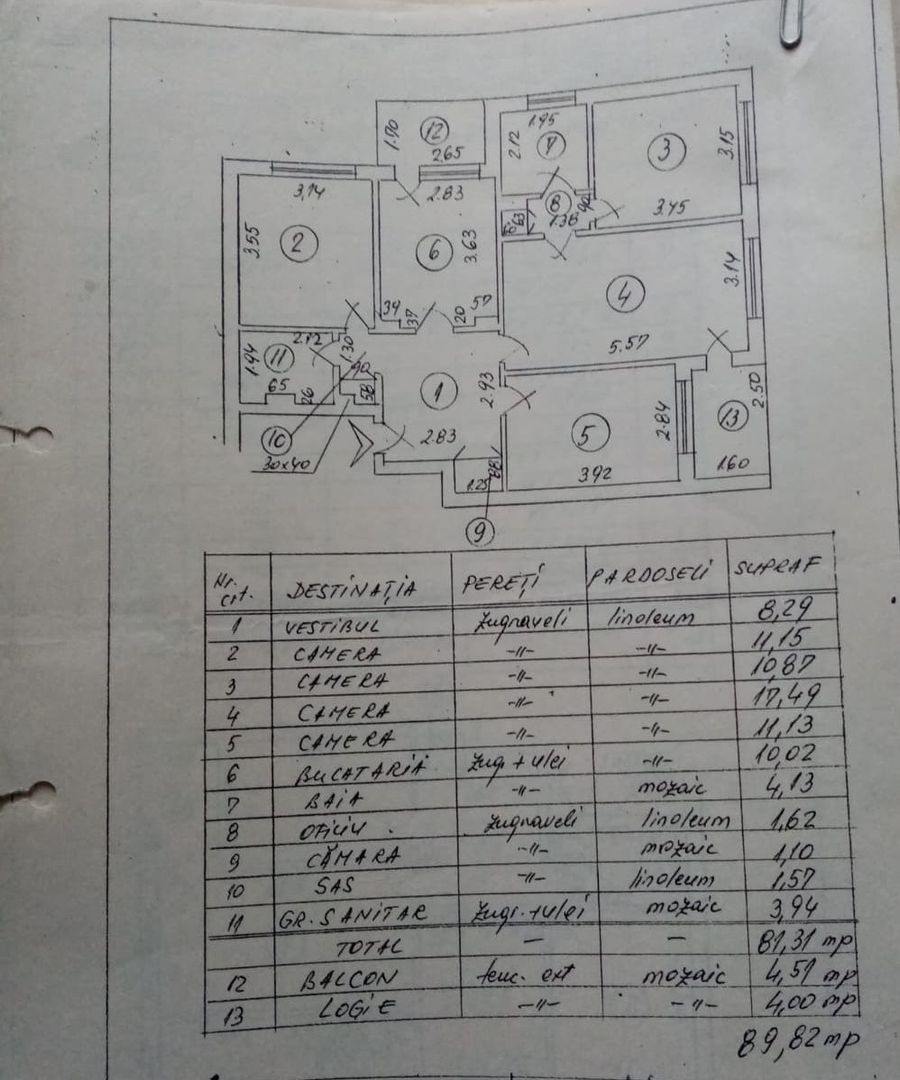 12
1.70
2.65
1.95
2.12
7
3
3.15
3.45
8
90
1.38
63
3,14
3.55
2
2.83
6
3.63
39
37
20
57
4
3.14
5.57
2.12
1.94
11
65
26
1.30
90
58
1
2.93
2.83
10
30x40
1.25
88
9
5
2.84
3.92
13
2.50
1.60
Nr. crt. DESTINAȚIA PEREȚI PARDOSELI SUPRAF
1 VESTIBUL zugraveli linoleum 8,29
2 CAMERA -"- -"- 11,15
3 CAMERA -"- -"- 10,87
4 CAMERA -"- -"- 17,49
5 CAMERA -"- -"- 11,13
6 BUCATARIA zug + ulei -"- 10,02
7 BAIA -"- mozaic 4,13
8 OFICIU zugraveli linoleum 1,62
9 CĂMARA -"- mozaic 1,10
10 SAS -"- linoleum 1,57
11 GR. SANITAR zugr. + ulei mozaic 3,94
TOTAL — — 81,31 mp
12 BALCON tenc. ext mozaic 4,51 mp
13 LOGIE -"- -"- 4,00 mp
89,82 mp